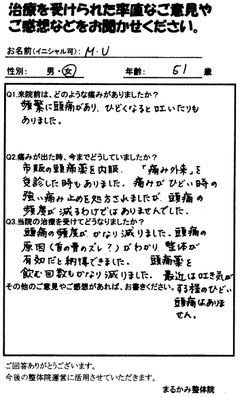 治療を受けられた率直なご意見や
ご感想などをお聞かせください。
お名前(イニシャル可): M.U
性別: 男・女 年齢: 51 歳
Q1.来院前は、どのような痛みがありましたか?
頻繁に頭痛があり、ひどくなると吐いたりも
ありました。
Q2.痛みが出た時、今までどうしていましたか?
市販の頭痛薬を内服、「痛み外来」を
受診した時もありました。痛みがひどい時の
強い痛み止めを処方されましたが、頭痛の
頻度が減るわけではありませんでした。
Q3.当院の治療を受けてどうなりましたか?
頭痛の頻度がかなり減りました。頭痛の
原因(首の骨のズレ?)がわかり、整体が
有効だと納得できました。頭痛薬を
飲む回数もかなり減りました。最近は吐き気が
その他のご意見やご感想があれば、お書きください。
する程のひどい
頭痛はありま
せん。
ご回答ありがとうございます。
今後の整体院運営に活用させていただきます。
まるかみ整体院